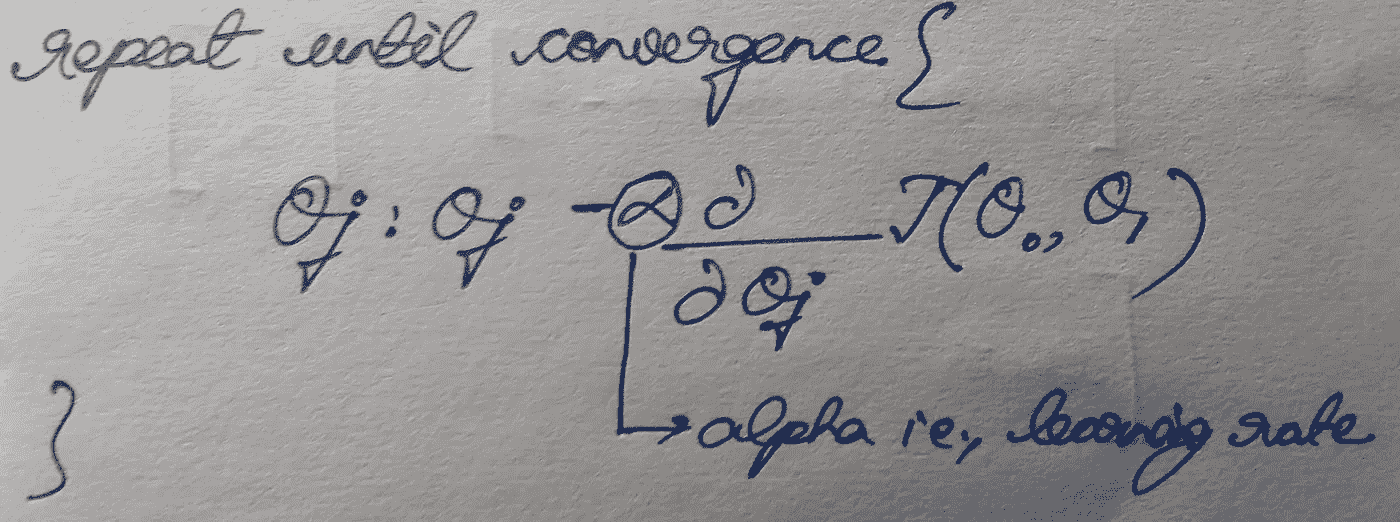 repeat until convergence {
θj : θj - α ∂/∂θj J(θ0, θ1)
→ alpha ie., learning rate
}